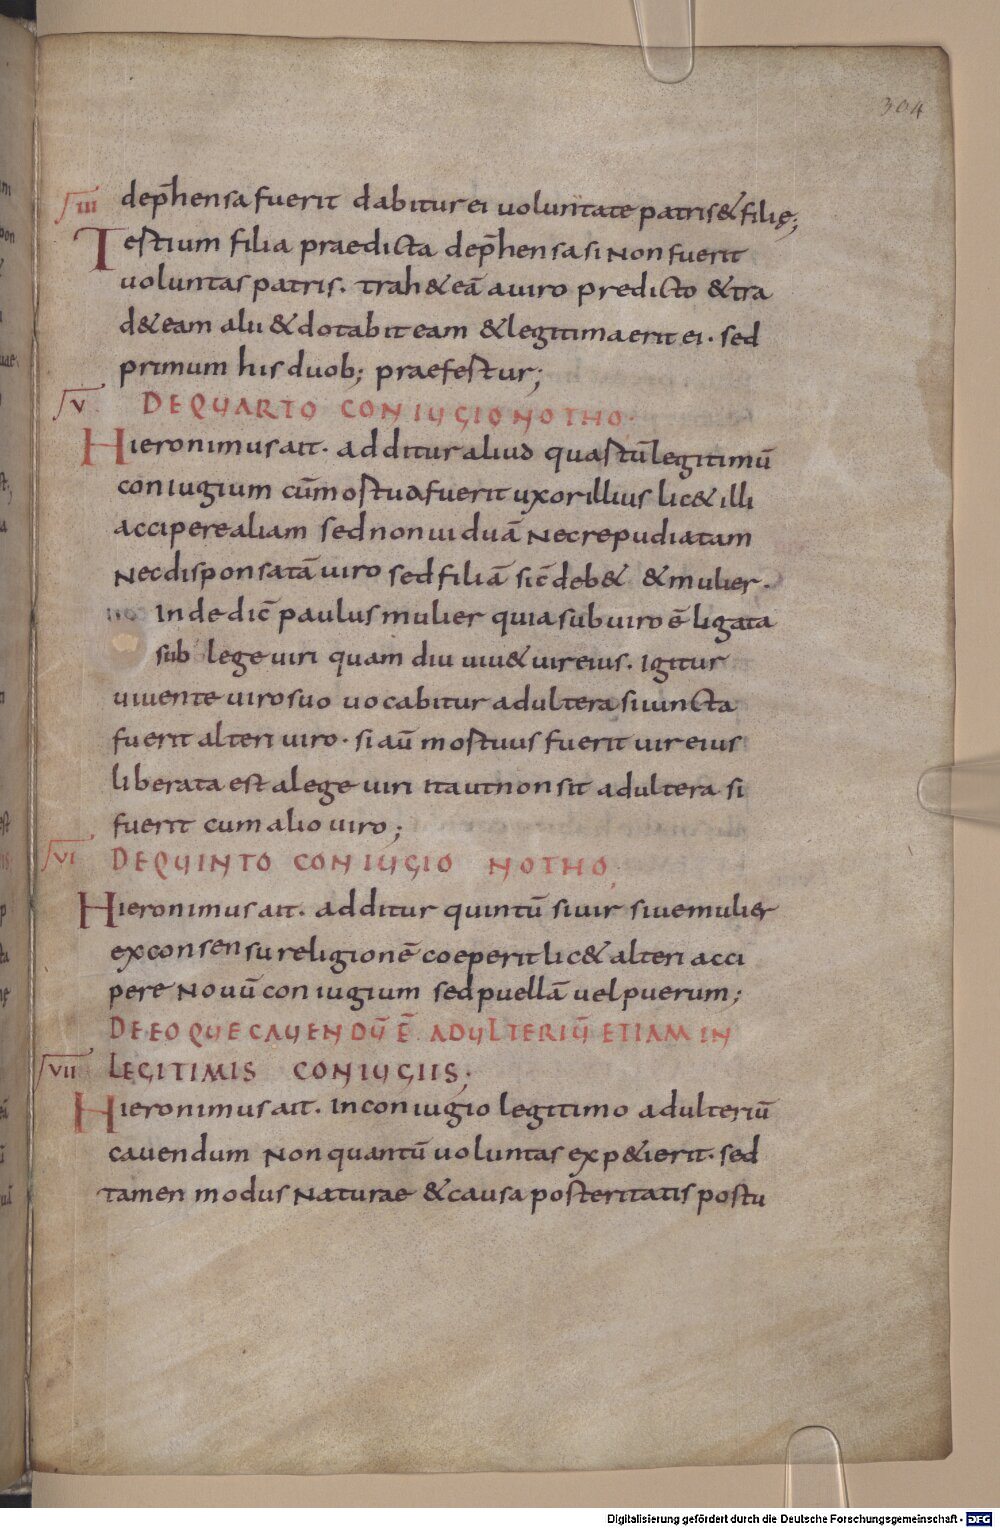 304
iii dep̄hensa fuerit dabitur ei voluntate patris & filię;
Testium filia praedicta dep̄hensa si non fuerit
voluntas patris. trah&eā a viro predicto & tra
d& eam alii & dotabit eam & legitima erit ei. sed
primum his duob; praefestur;
v DE QUARTO CONIUGIO NOTHO.
Hieronimus ait. additur aliud quastū legitimū
coniugium cūm ostua fuerit uxor illius lic& illi
accipere aliam sed non viduā nec repudiatam
nec disponsatā viro sed filiā sic̄ deb& & mulier.
Inde dic̄ paulus mulier quia sub viro ē ligata
sub lege viri quam diu viv& vir eius. Igitur
vivente viro suo vocabitur adultera si iuncta
fuerit alteri viro. si aū mostuus fuerit vir eius
liberata est a lege viri ita ut non sit adultera si
fuerit cum alio viro;
vi DE QUINTO CONIUGIO NOTHO,
Hieronimus ait. additur quintū si vir sive mulier
ex consensu religionē coeperit lic& alteri acci
pere novū coniugium sed puellā vel puerum;
DE EO QUE CAVENDŪ Ē ADULTERIŪ ETIAM IN
vii LEGITIMIS CONIUGIIS;
Hieronimus ait. In coniugio legitimo adulteriū
cavendum non quantū voluntas exp&ierit. sed
tamen modus naturae & causa posteritatis postu
Digitalisierung gefördert durch die Deutsche Forschungsgemeinschaft - DFG